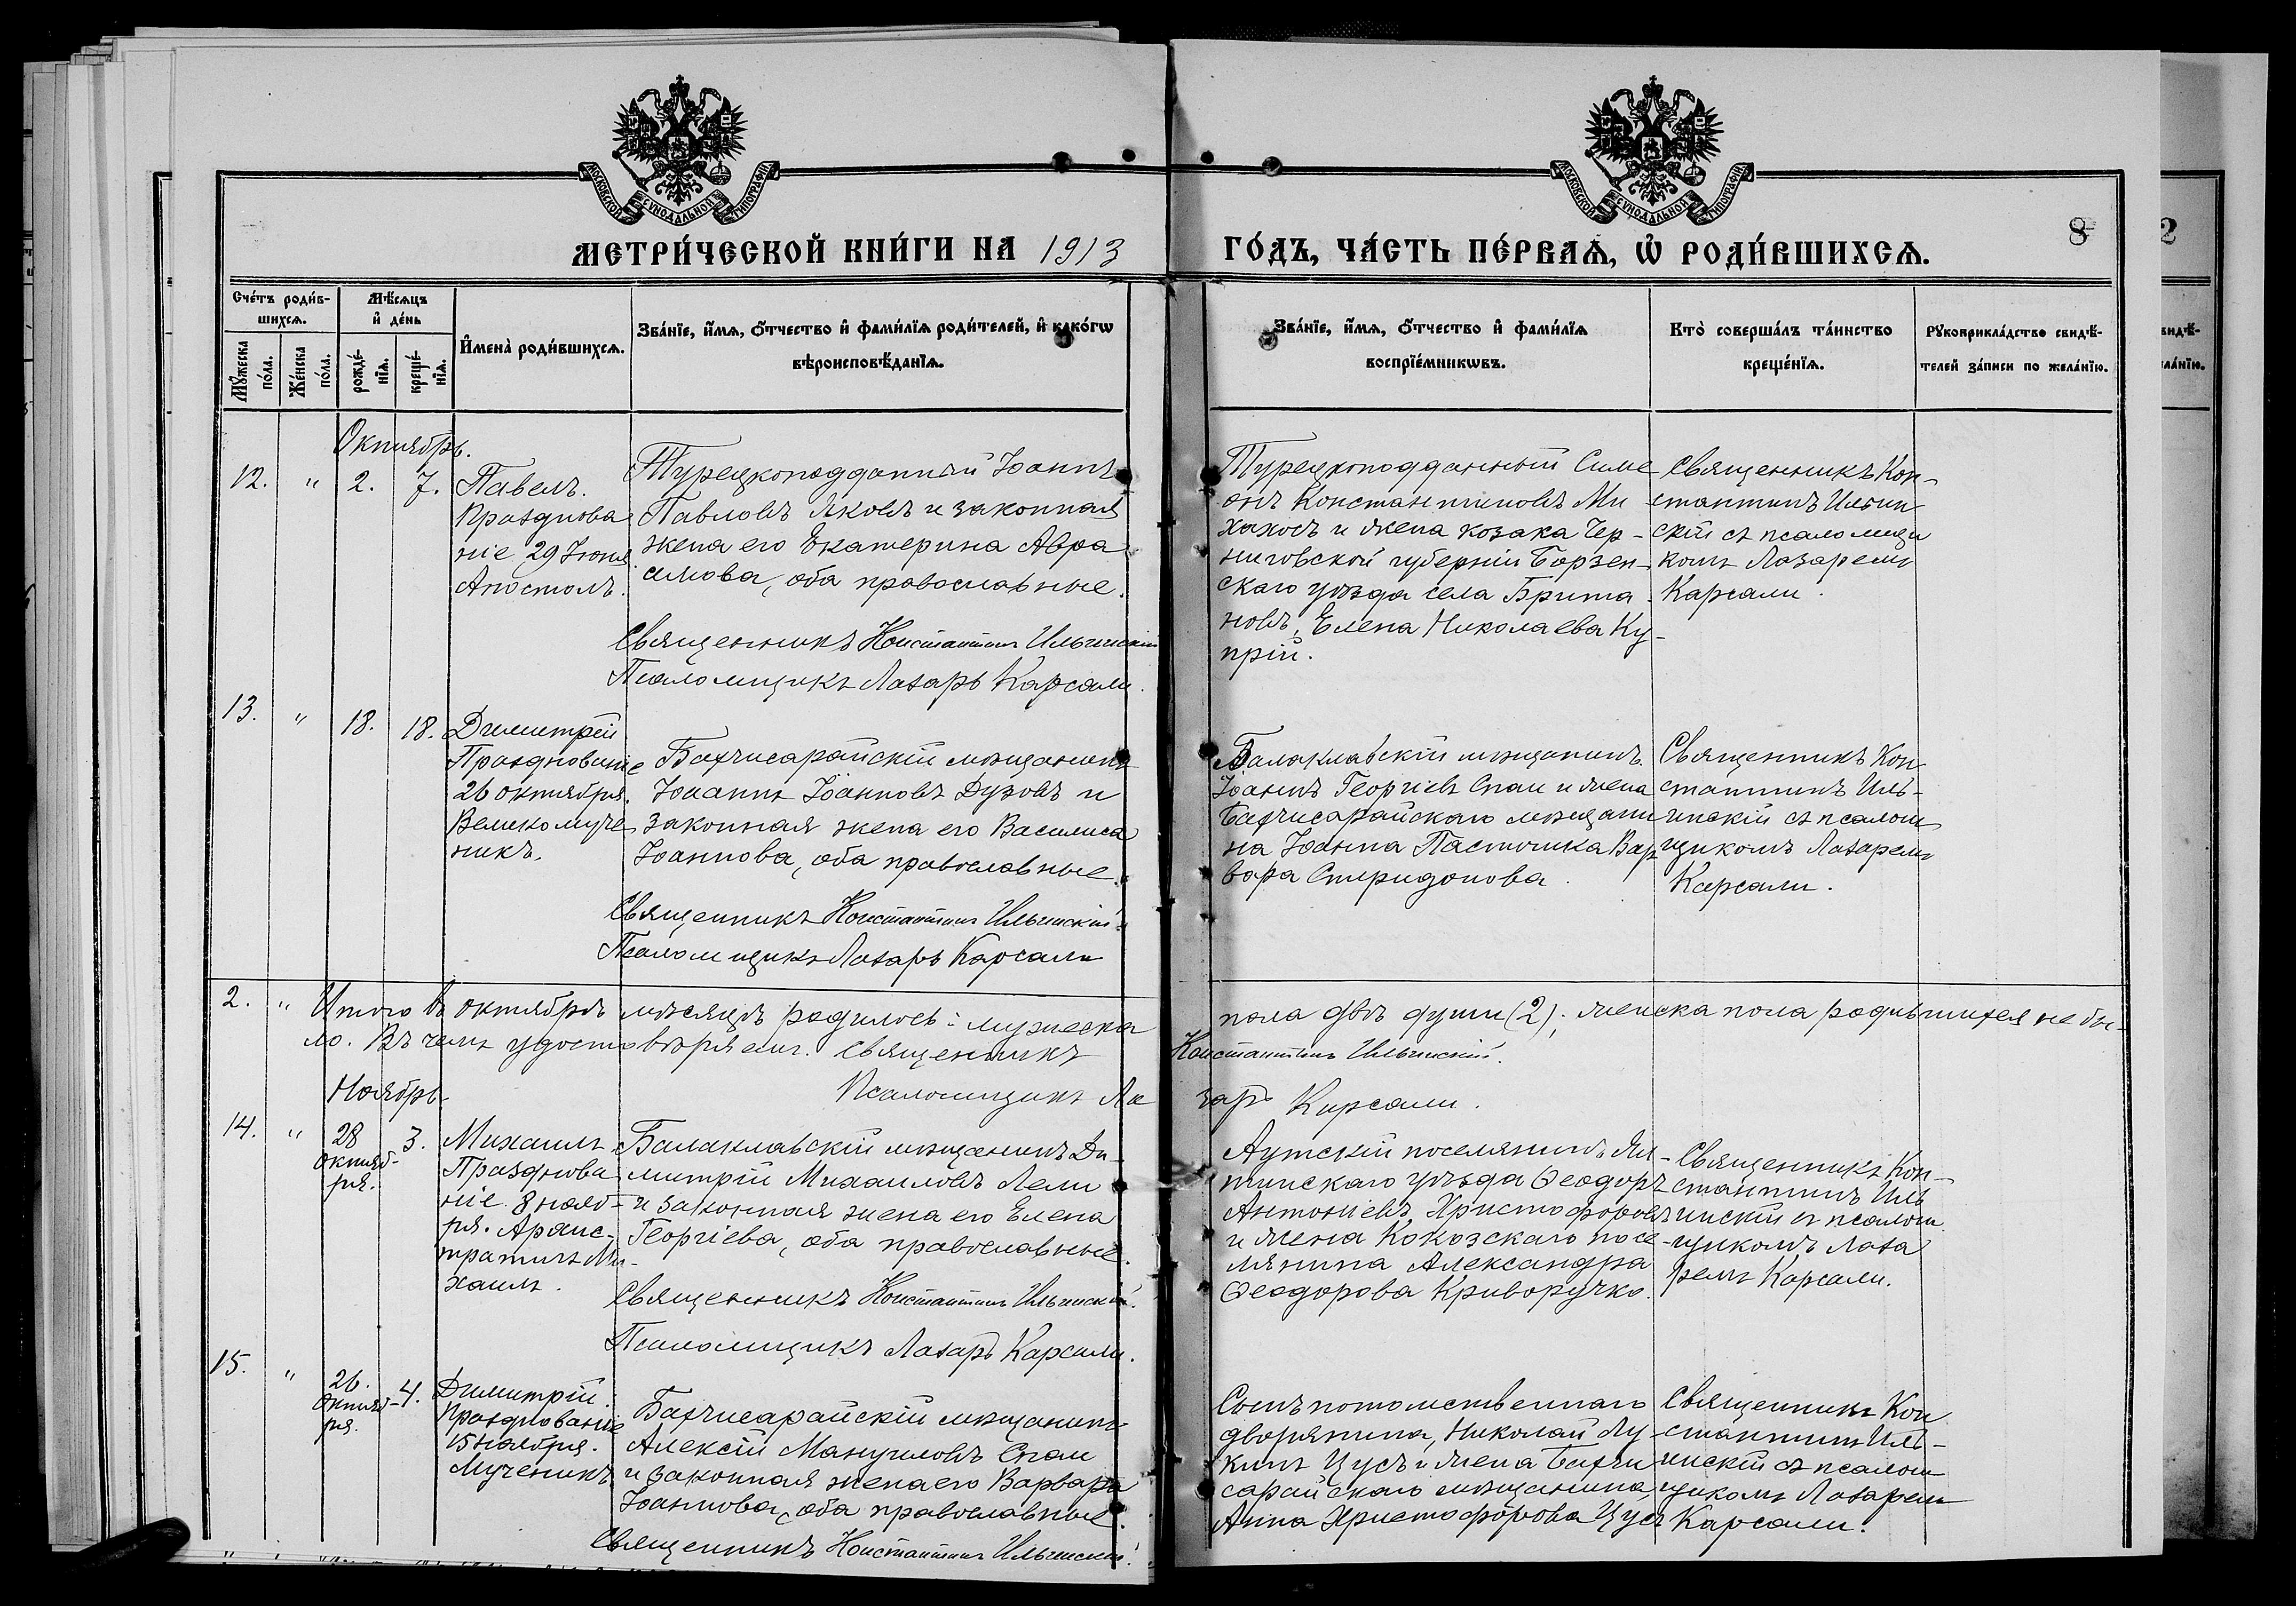 МОСКОВСКОЙ СѴНОДАЛЬНОЙ ТИПОГРАФІИ
МОСКОВСКОЙ СѴНОДАЛЬНОЙ ТИПОГРАФІИ
МЕТРИ́ЧЕСКОЙ КНИ́ГИ НА 1913
ГО́ДЪ, ЧА́СТЬ ПЕ́РВАѦ, Ѽ РОДИ́ВШИХСѦ.
8
2
Сче́тъ роди́в-
шихсѧ.
Мѣ́сѧцъ
и҆ де́нь
И҆мена̀ роди́вшихсѧ.
Зва́нїе, и҆́мѧ, ѻ҆́тчество и҆ фами́лїѧ роди́телей, и҆ како́гѡ
вѣроисповѣ́данїѧ.
Мꙋ́жеска
по́ла.
Же́нска
по́ла.
рожде́-
нїѧ.
креще́-
нїѧ.
Зва́нїе, и҆́мѧ, ѻ҆́тчество и҆ фами́лїѧ
воспрїе́мникѡвъ.
Кто̀ соверша́лъ та́инство
креще́нїѧ.
Рꙋкоприкла́дство свидѣ́-
телей за́писи по жела́нїю.
Октябрь.
12. " 2. 7. Павелъ.
Празднова
ніе 29 Іюня
Апостолъ.
Турецкоподданный Іоаннъ
Павловъ Яковъ и законная
жена его Екатерина Авра
амова, оба православные.
Священникъ Константинъ Ильчинскій
Псаломщикъ Лазарь Карсали.
Турецкоподданный Симе
онъ Константиновъ Ми
хаховъ и жена козака Чер-
ниговской губерніи Борзен-
скаго уѣзда села Брита
новъ, Елена Николаева Ку-
прій.
Священникъ Кон-
стантинъ Ильчин
скій съ псаломщи
комъ Лазаремъ
Карсали.
13. " 18. 18. Димитрій
Празднованіе
26 октября.
Великомуче
никъ.
Бахчисарайскій мѣщанинъ
Іоаннъ Іоанновъ Дузовъ и
законная жена его Василиса
Іоаннова, оба православные.
Священникъ Константинъ Ильчинскій.
Псаломщикъ Лазарь Карсали
Балаклавскій мѣщанинъ
Іоаннъ Георгіевъ Спаи и жена
Бахчисарайскаго мѣщани
на Іоанна Пастошика Вар
вара Спиридонова.
Священникъ Кон
стантинъ Иль-
чинскій съ псалом
щикомъ Лазаремъ
Карсали.
2. " Итого въ октябрѣ мѣсяцѣ родилось: мужеска
пола двѣ души (2); женска пола родившихся не бы-
ло. Въ чемъ удостовѣряемъ. Священникъ
Константинъ Ильчинскій.
Псаломщикъ Ла
зарь Карсали.
Ноябрь.
14. " 28 октяб-
ря. 3. Михаилъ
Празднова
ніе 8 нояб-
ря. Архис-
тратигъ Ми-
хаилъ.
Балаклавскій мѣщанинъ Ди-
митрій Михаиловъ Лели
и законная жена его Елена
Георгіева, оба православные.
Священникъ Константинъ Ильчинскій.
Псаломщикъ Лазарь Карсали.
Аутскій поселянинъ Ял-
тинскаго уѣзда Ѳеодоръ
Антоніевъ Христофоровъ
и жена Кокозскаго посе-
лянина Александра
Ѳеодорова Криворучко.
Священникъ Кон-
стантинъ Иль
чинскій съ псалом
щикомъ Лаза
ремъ Карсали.
15. " 26. октяб-
ря. 4. Димитрій.
Празднованіе
15 ноября.
Мученикъ.
Бахчисарайскій мѣщанинъ
Алексій Мануиловъ Спаи
и законная жена его Варвара
Іоаннова, оба православные.
Священникъ Константинъ Ильчинскій.
Сынъ потомственнаго
дворянина, Николай Лу-
кинъ Цусъ и жена Бахчи
сарайскаго мѣщанина,
Анна Христофорова Цусъ
Священникъ Кон
стантинъ Иль-
чинскій съ псалом
щикомъ Лазаремъ
Карсали.